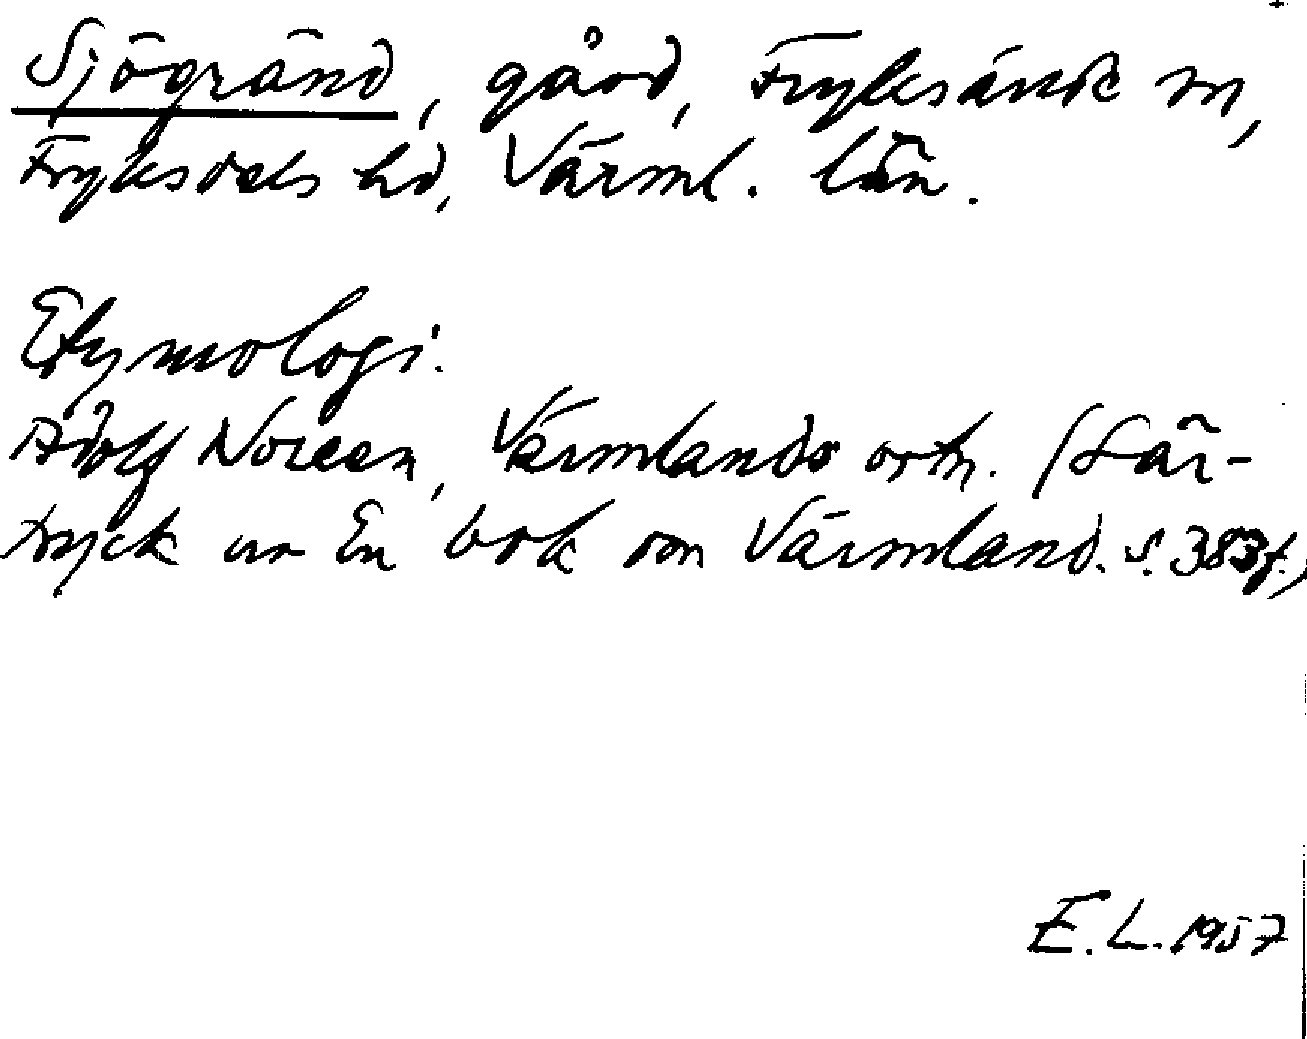 Sjögränd, gård, Fryksände sn,
Fryksdals hd, Värml. län.
Etymologi.
Adolf Noreen, Värmlands ortn. (Sär-
tryck ur En bok om Värmland. s. 383f.)
E. L. 1957